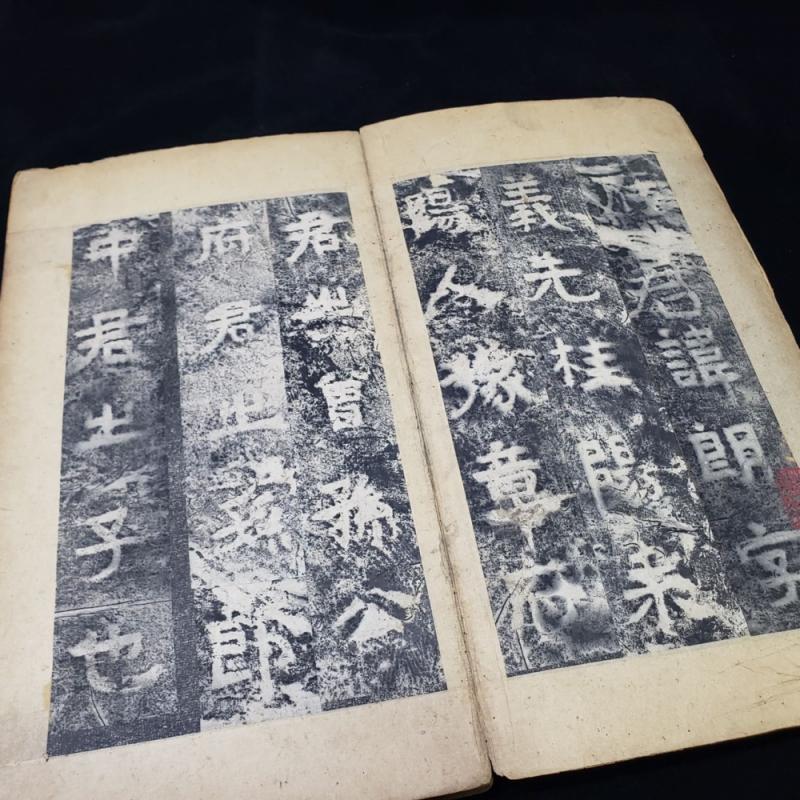 府君諱朗字
義先桂陽耒
陽人豫章府
君之曾孫公
府君之孫郎
中君之子也